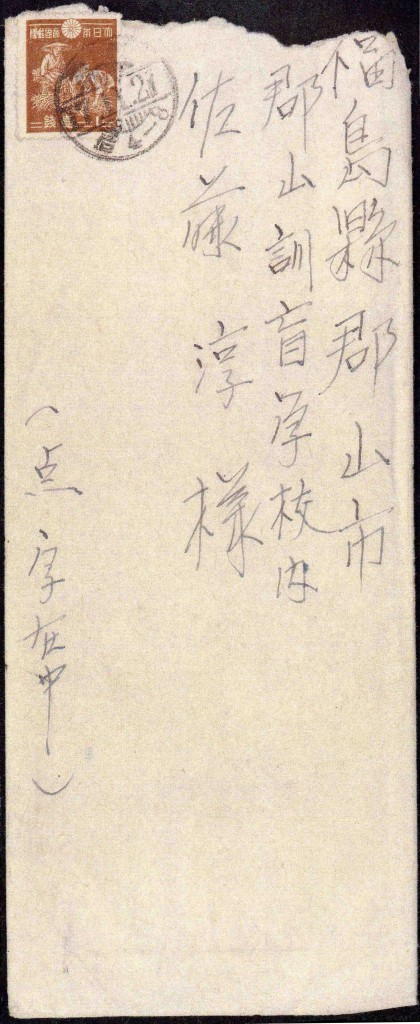 福島縣郡山市
郡山訓盲学校内
佐藤淳様
(点字在中)
大日本帝國郵便
二錢